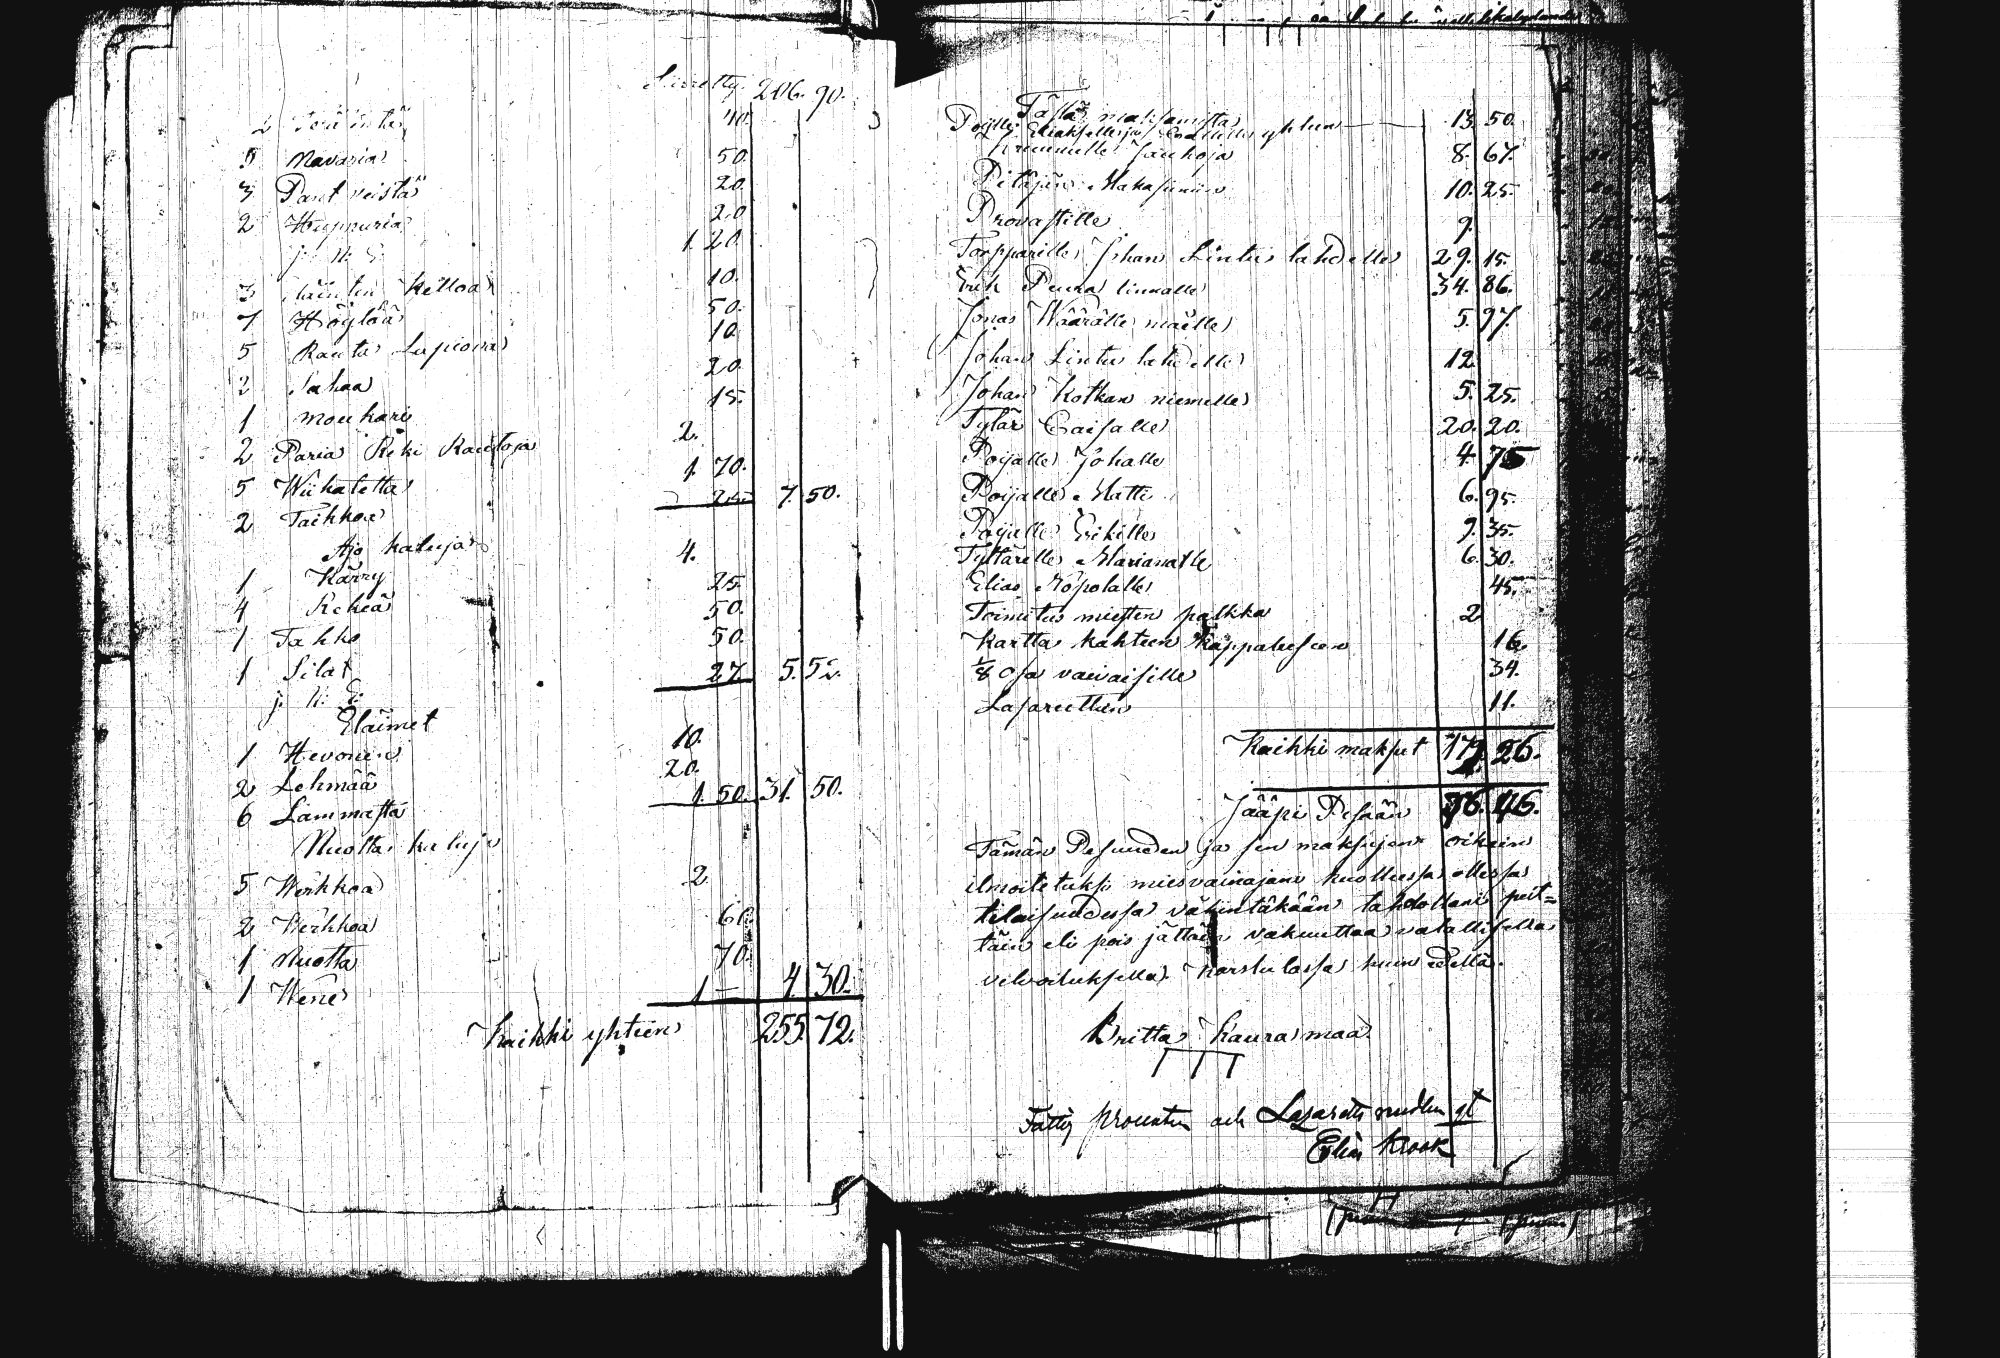 Siirretty 206. 90.
2 Terä intä 40.
5 Navaria 50.
3 Pant veistä 20.
2 Huppuria 20
j. n. e. 1. 20.
3 kelloa 10.
7 Höylää 50.
5 Rauta Lapiova 10.
2 Sahaa 20.
1 moukari 15.
2 Paria Reki Rautoja 2.
5 Wiikatetta 1. 70.
2 Taikkoa 25 7. 50.
Ajo kaluja
1 Kärry 4.
4 Rekeä 25.
1 Takko 50.
1 Silat 50.
j. n. e. 27 5. 52.
Eläimet
1 Hevonen 10.
2 Lehmää 20.
6 Lammasta 1. 50. 31. 50.
Nuotta kaluja
5 Werkkoa 2
2 Werkkoa 60.
1 Nuotta 70.
1 Wene 1 — 4. 30.
Kaikki yhteen 255. 72.
Tästä maksamista
Pojille yhteen 13. 50.
Kruunulle Jauhoja 8. 67.
Pitäjän Makasiiniin 10. 25.
Provastille 9.
Torpparille Johan Lintu lahdelle 29. 15.
Erik Peura linnalle 34. 86.
Jonas Wäärälle mäelle 5. 97.
Johan Lintu lahdelle 12.
Johan Kotkan niemelle 5. 25.
Tytär Caisalle 20. 20.
Poijalle Johalle 4. 75
Poijalle Matti 6. 95.
Poijalle Erikille 9. 35.
Tyttärelle Marianalle 6. 30.
Elias Nöpolalle 45.
Toimitus miesten palkka 2
Kartta kahteen Käppaleseen 16.
1/8 osa vaivaisille 34.
Lasarettiin 11.
Kaikki maksut 179. 26.
Jääpi Pesään 76. 46.
Tämän Pesuuden ja sen maksujen oikein
ilmoitetuksi miesvainajani kuollessa ollessa
tilaisuudessa vähintäkään tahdollani peit=
täin eli pois jättäin vakuuttaa valallisella
velvoituksella. Karstulassa kuin edellä.
Britta Kaurasmaa
Fattig procenten och Lazaretts medlen qt
Elias Krook